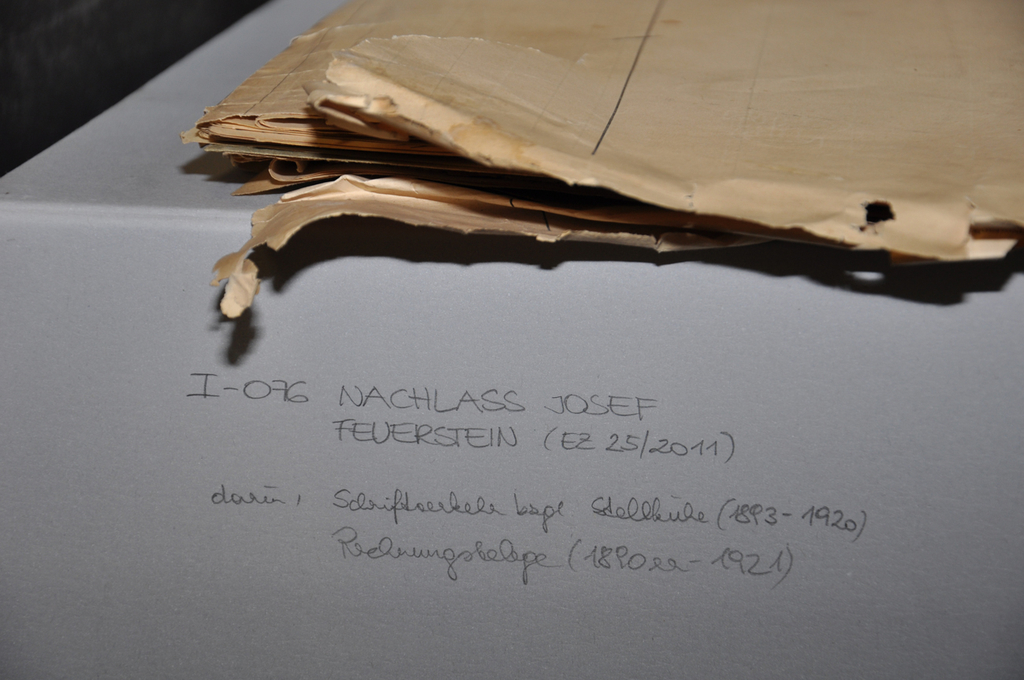 I-076 NACHLASS JOSEF
FEUERSTEIN (EZ 25/2011)
darin: Schriftverkehr bzgl (1893-1920)
Rechnungsbelege (1890er-1921)